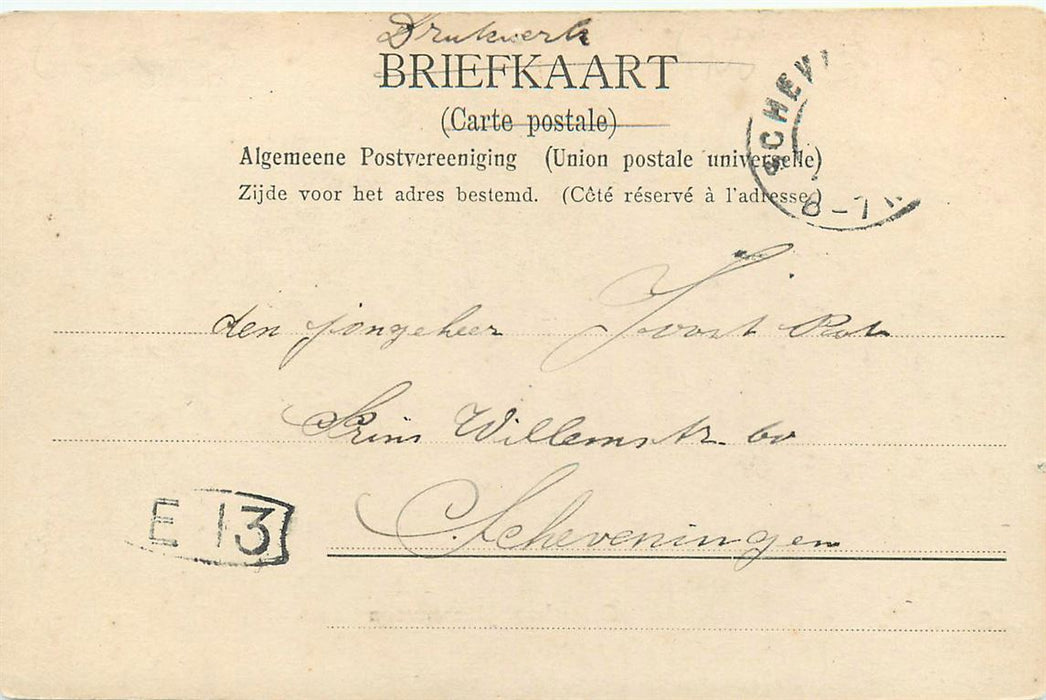 Drukwerk
BRIEFKAART
(Carte postale)
Algemeene Postvereeniging (Union postale universelle)
Zijde voor het adres bestemd. (Côté réservé à l'adresse.)
SCHEV
8-7
den jongeheer Joost
Prins Willemstr. 60
Scheveningen
E 13